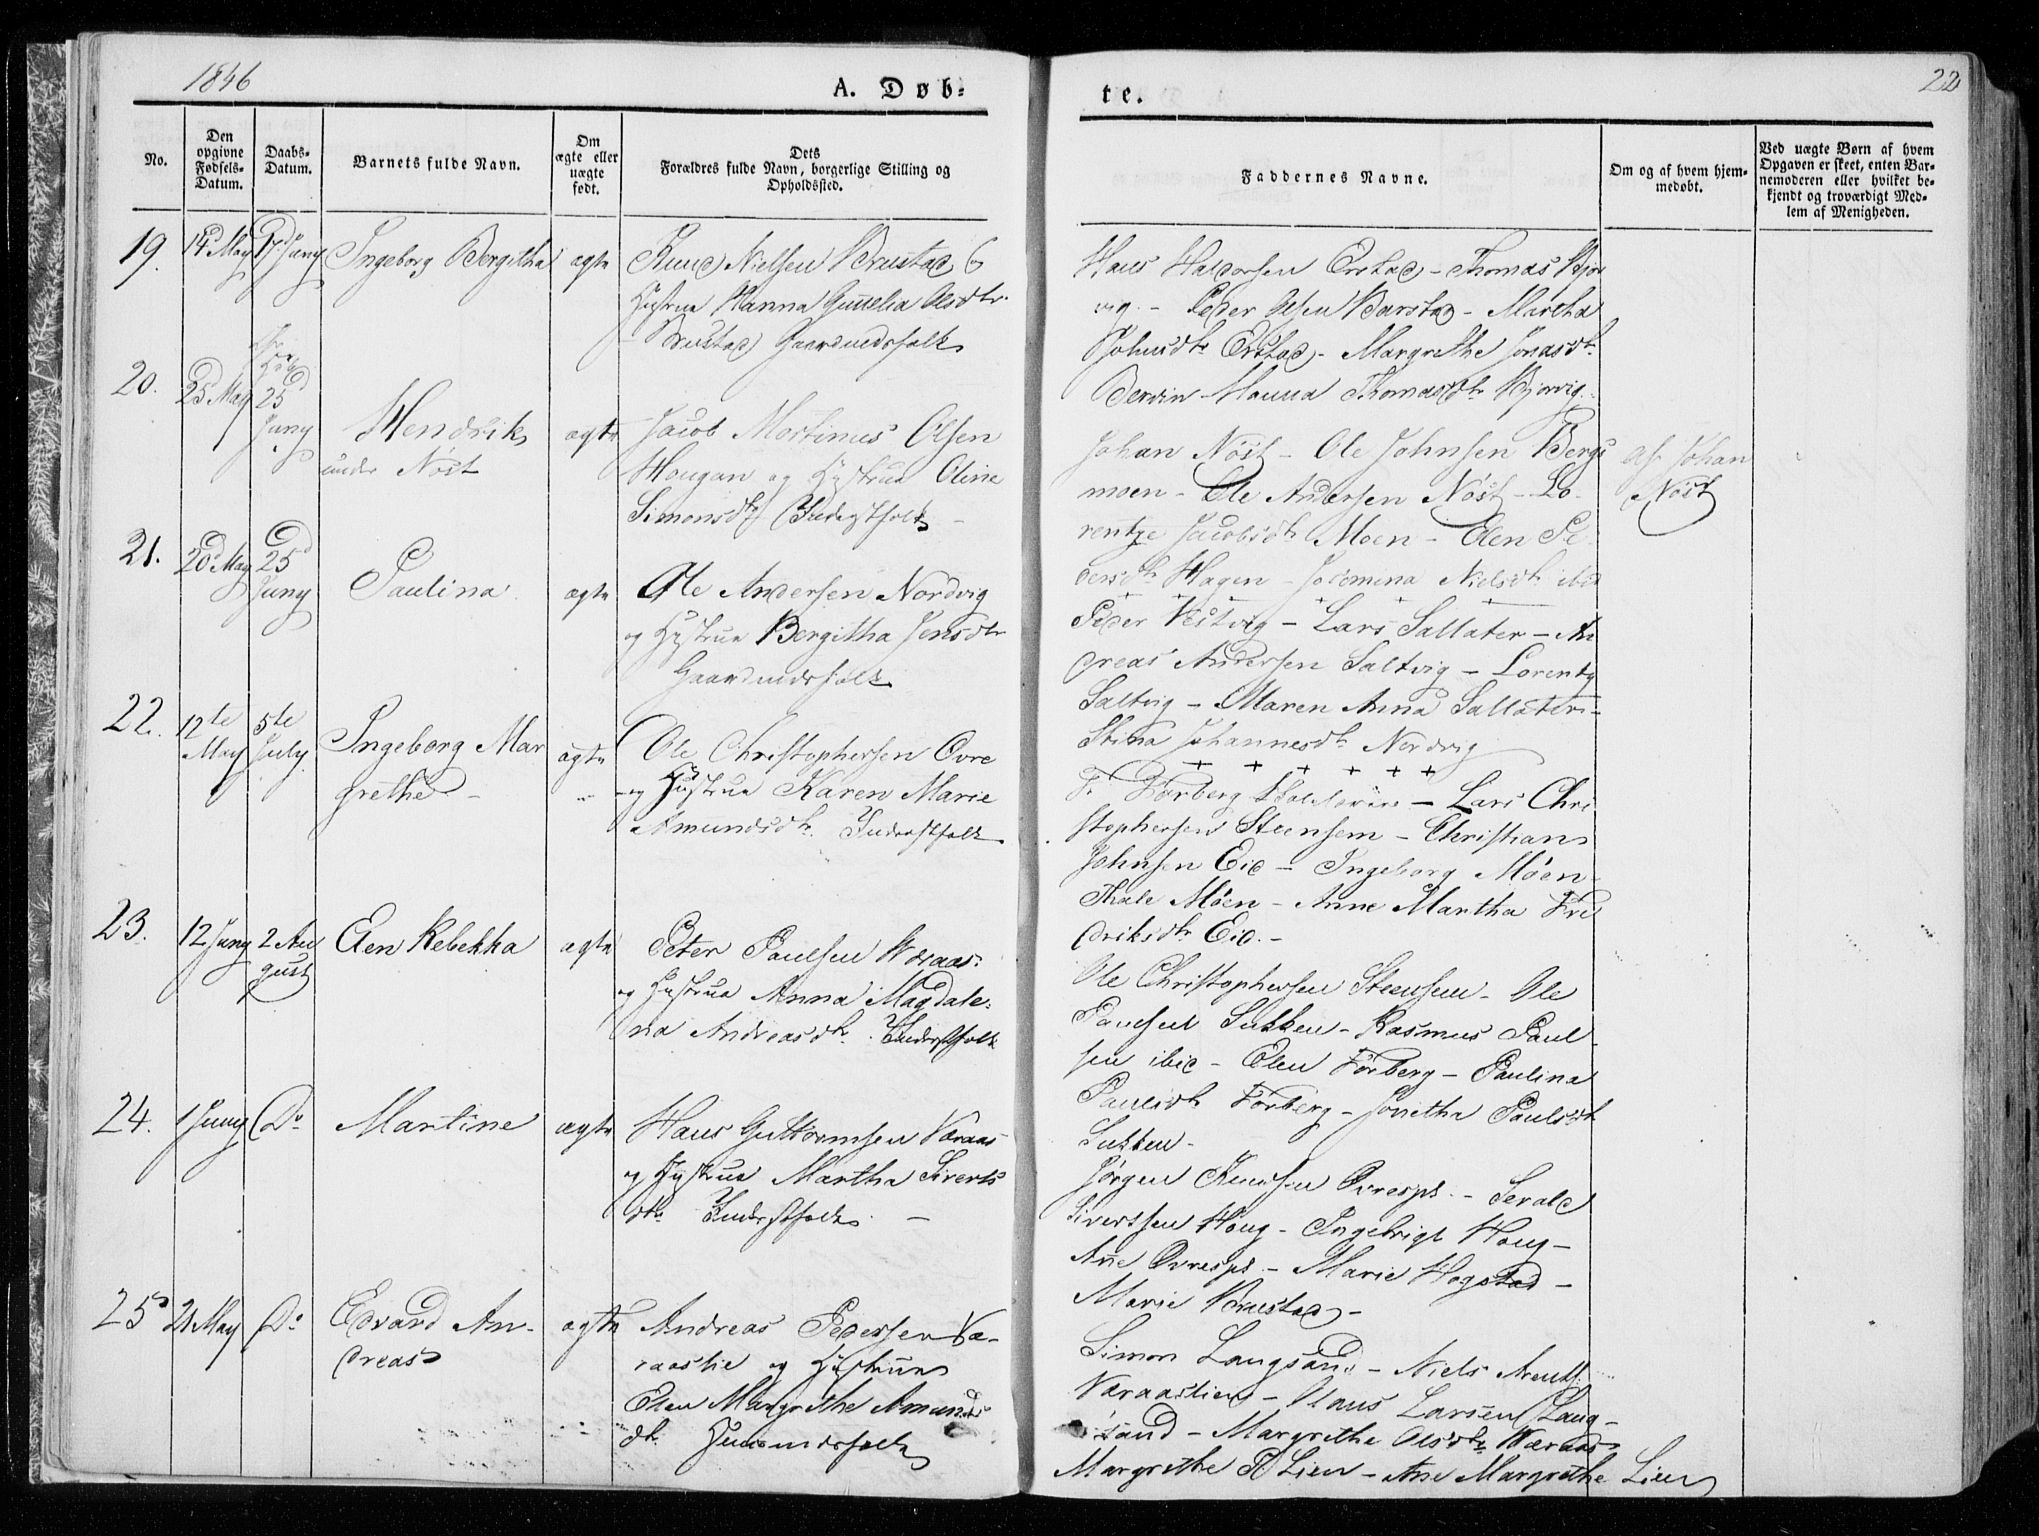 1846
A. Døb-
te.
22
No.
Den
opgivne
Fødsels-
Datum.
Daabs-
Datum.
Barnets fulde Navn.
Om
ægte eller
uægte
født.
Dets
Forældres fulde Navn, borgerlige Stilling og
Opholdssted.
Faddernes Navne.
Om og af hvem hjem-
medøbt.
Ved uægte Børn af hvem
Opgaven er skeet, enten Bar-
nemoderen eller hvilket be-
kjendt og troværdigt Med-
lem af Menigheden.
19.
14d May
17d Juny
Ingeborg Bergitha
ægte
Knud Nielsen Brustad &
Hustrue Hanna Gunelia Olsdtr
Brustad Gaardmdsfolk
Hans Haldorsen Erstad - Thomas Kjør
vig - Peder Olsen Barstad - Martha
Johnsdtr Erstad - Margrethe Jonasdtr
Hanna Thomasdtr Kjørvig
20.
25 May
25
Juny
Hendrik
under Nøst
ægte
Jacob Mortinus Olsen
Hougan og Hustrue Oline
Simonsdtr Inderstfolk
Johan Nøst - Ole Johnsen Bergs
moen - Ole Andersen Nøst - Lo-
rentze Jacobsdtr Moen - Elen Pe
dersdtr Hagen - Nielsdtr ibid
af Johan
Nøst
21.
20d May
25d
Juny
Paulina
ægte
Ole Andersen Nordvig
og Hustrue Bergitha Jensdtr
Gaardmdsfolk
Peder Vestvig - Lars Sallater - An
dreas Andersen Saltvig - Lorents
Saltvig - Maren Anna Sallater -
Stina Johannesdtr Nordvig
22.
12te
May
5te
July
Ingeborg Mar
grethe -
ægte
Ole Christophersen Øvre
og Hustrue Karen Marie
Amundsdtr Inderstfolk
+ + + + + +
Førberg - Lars Chri
stophersen Steensem - Christian
Johnsen Eid - Ingeborg Møen -
Thale Møen - Anne Martha Fre
driksdtr Eid. -
23.
12 Juny
2 Au
gust
Elen Rebekka
ægte
Peter Paulsen Væraas
og Hustrue Anna Magdale-
na Andreasdtr Inderstfolk
Ole Christophersen Steensem - Ole
Paulsen Sukken - Rasmus Paul
sen ibid - Elen Førberg - Paulina
Paulsdtr Førberg - Jonetha Paulsdtr
Sukken -
24.
1 Juny
Do
Martine
ægte
Hans Guttormsen Væraas
og Hustrue Martha Siverts
dtr Inderstfolk -
Jørgen Knudsen - 
Sivertsen Houg - Ingebrigt Houg -
Ane - Marie Hogstad -
Marie Brustad -
25
21 May
Do
Edvard An-
dreas
ægte
Andreas Pedersen Væ-
raaslie og Hustrue
Elen Margrethe Amunds
dtr Huusmdsfolk
Simon Langsand - Niels Arents
Væraaslien - Claus Larsen Lang-
sand - Margrethe Olsdtr Væraas
Margrethe Lien - Ane Margrethe Lien